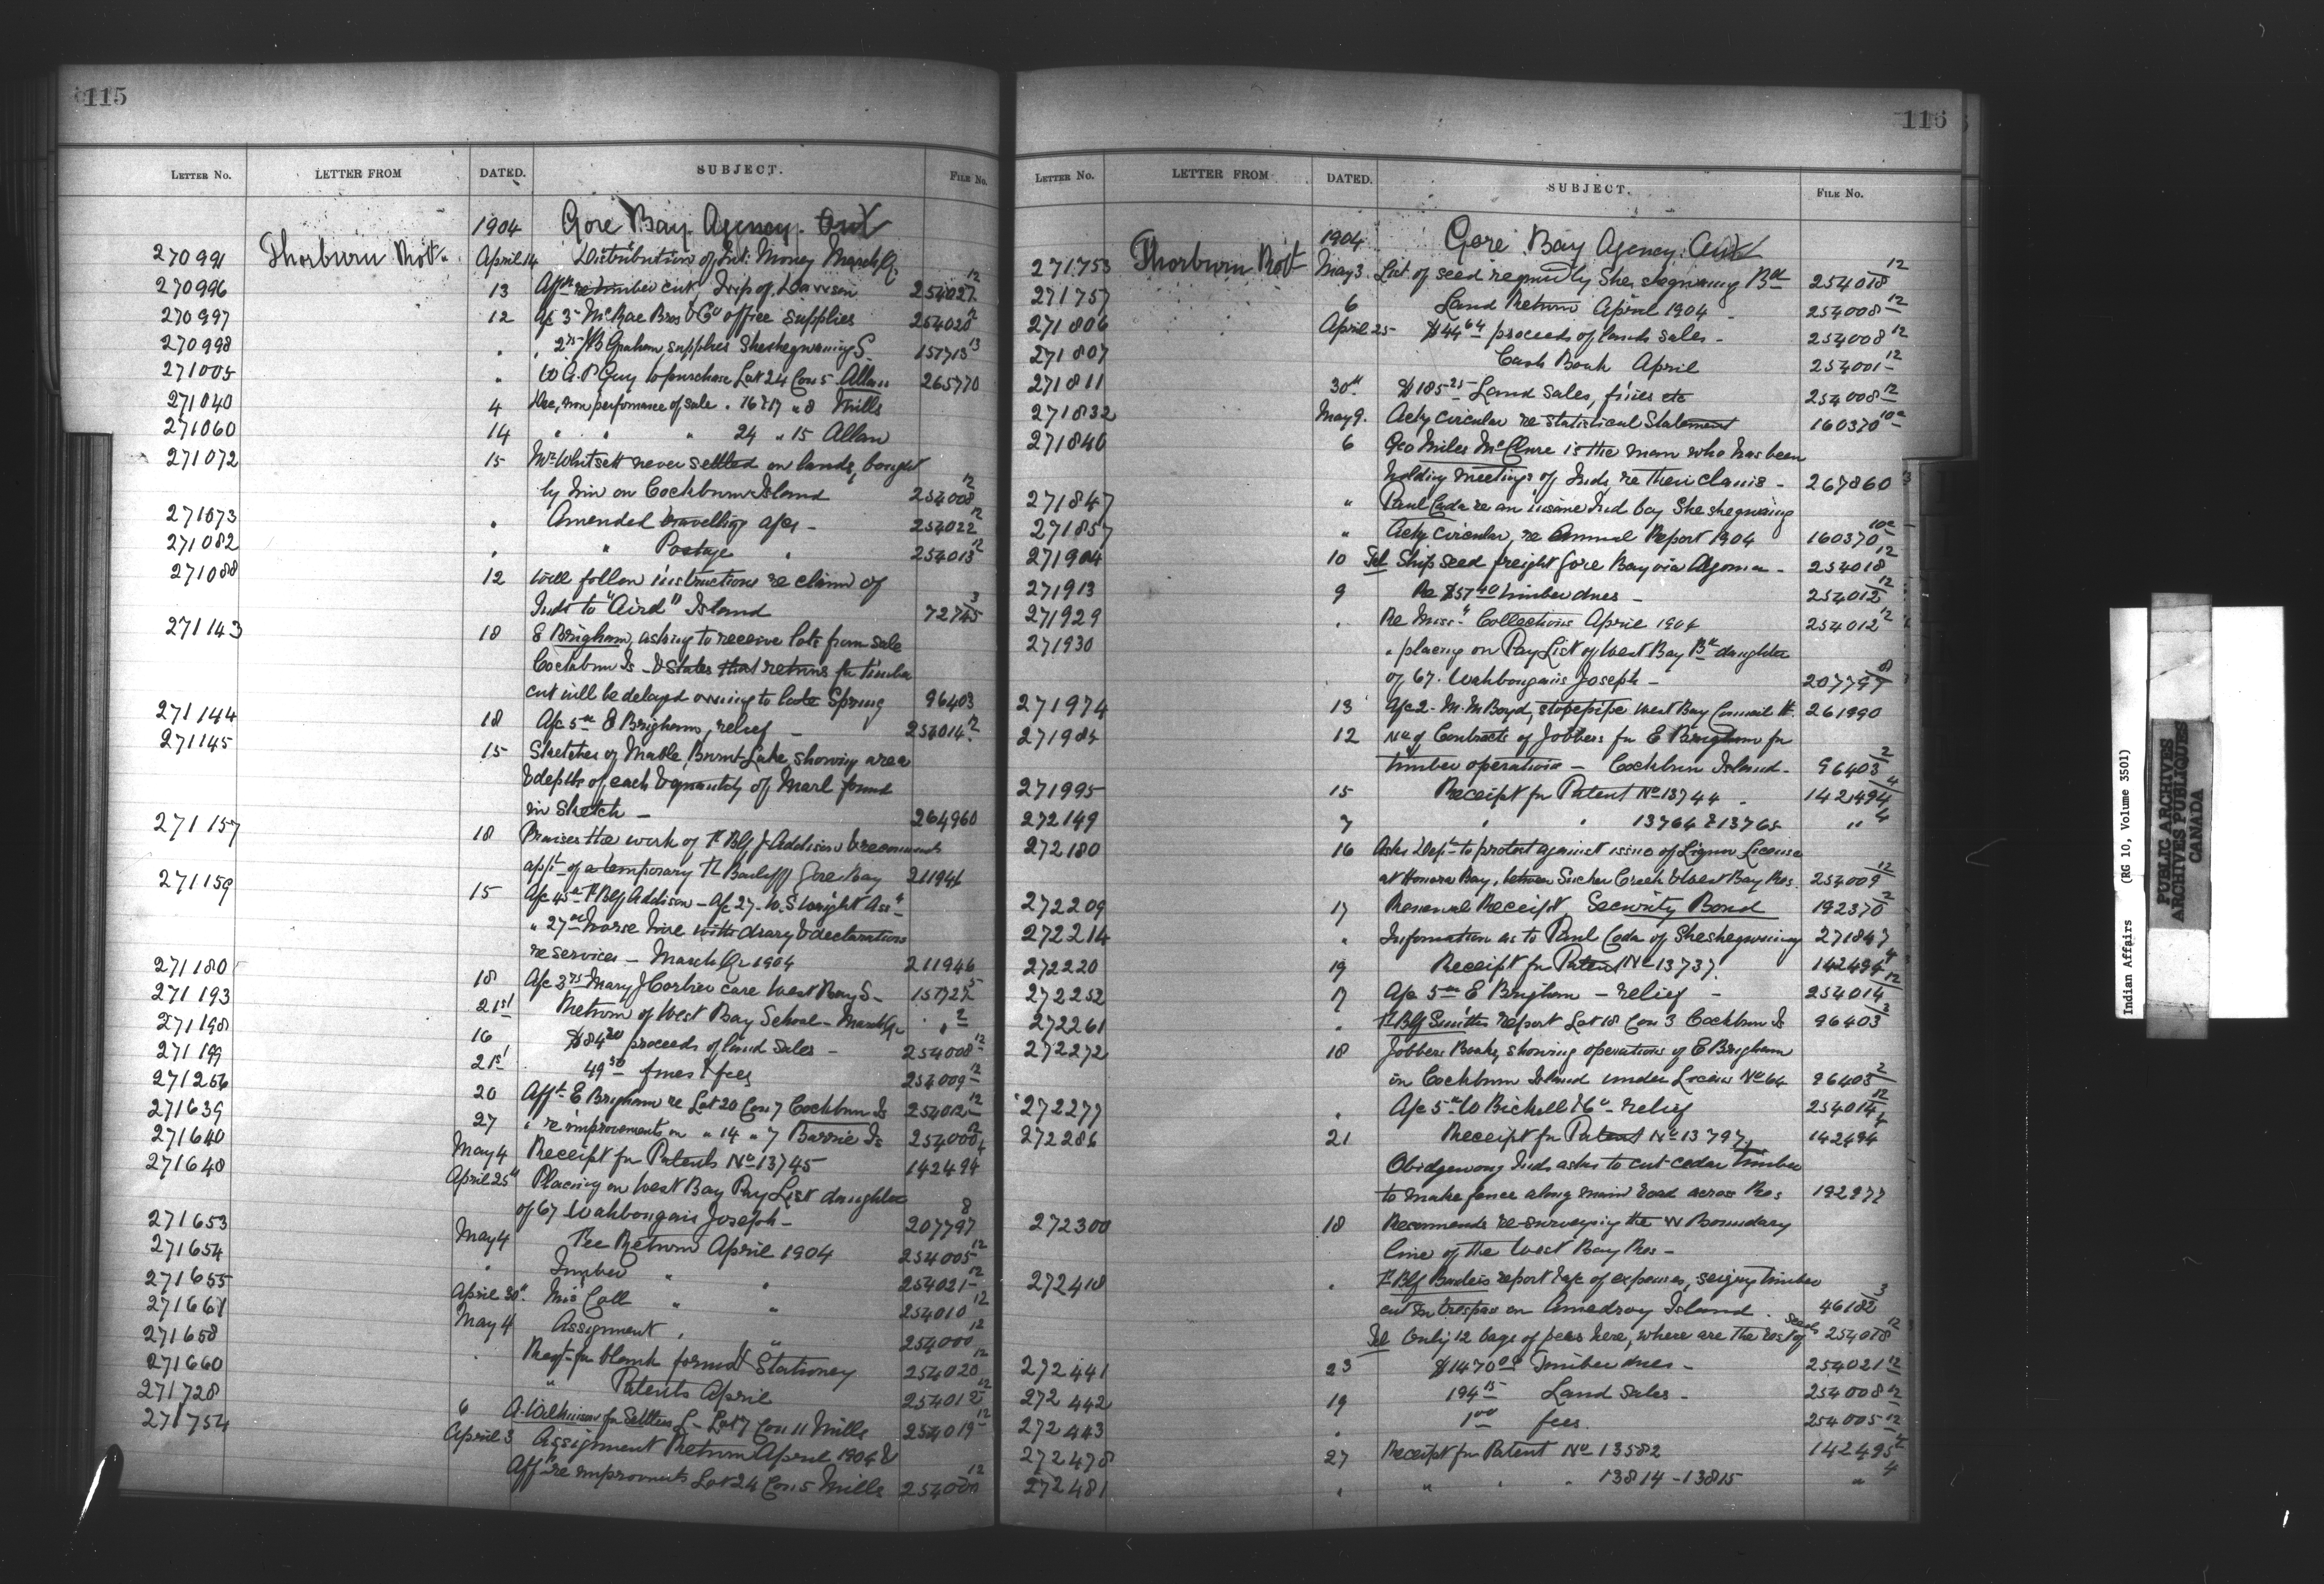 115
LETTER NO. LETTER FROM DATED. SUBJECT. FILE No.
1904 Gore Bay Agency. Ont
270991 Thorburn Robt. April 14 Distribution of Int: Money March Qr
270996 13 Aff re timber cut 254027 12
270997 12 A/c 3- McRae Bros & Co office supplies 254020 12
270998 " " 2 75 B Graham supplies Sheshegwaning S. 157713 13
271005 " W G. P Guy to purchase Lot 24 Con 5 Allan 265770
271040 4 non performance of sale. 16 & 17 " 8 Mills
271060 14 " " " 24 " 15 Allan
271072 15 Mr Whitsett never settled on lands, bought
by him on Cockburn Island 254008 12
271073 " Amended travelling a/cs - 254022 12
271082 " " Postage " 254013 12
271088 12 Will follow instructions re claim of
Inds to "Aird" Island 72745 3
271143 18 E Brigham, asking to receive lots from sale
Cockburn Is - & states that returns for timber
cut will be delayed owning to late Spring 96403
271144 18 A/c 5 00 E Brigham, relief - 254014 12
271145 15 Sketches of Mable, Burnt Lake, showing area
& depths of each & quantity of Marl found
in Sketch - 264960
271157 18 Praises the work of T. Blf J. Addison & recommends
appt of a temporary T. Bailiff Gore Bay 211946
271159 15 A/c 45 00 T. Blf Addison - A/c 27- W. S Wright Asst -
" 27 00 horse hire with diary & declarations
re services - March Qr 1904 211946
271180 18 A/c 3 75 Mary J Corbier care West Bay S - 157727 5
271193 21st Return of West Bay School - March Qr " 2
271198 16 $84 20 proceeds of land sales - 254008 12
271199 21st 49 50 fines & fees 254009 12
271256 20 Afft E Brigham re Lot 20 Con 7 Cockburn Is 254012 12
271639 27 " re improvements on " 14 " 7 Barrie Is 254000 12
271640 May 4 Receipt for Patents No 13745 142494 4
271648 April 25th Placing on West Bay Pay List daughter
of 67 Wahbongais Joseph - 207797 8
271653 May 4 Fee Return April 1904 254005 12
271654 " Timber " " 254021 12
271655 April 30th Mis Coll " " 254010 12
271661 May 4 Assignment " " 254000 12
271658 " Reqt for blank forms & Stationery 254020 12
271660 " Patents April 254012 12
271728 6 A. Wilkinson for Settlers L - Lot 7 Con 11 Mills 254019 12
271754 April 3 Assignment Return April 1904 &
Aff re improvments Lot 24 Con. 5 Mills 254000 12
116
LETTER NO. LETTER FROM DATED. SUBJECT. FILE No.
1904 Gore Bay Agency. Ont
271753 Thorburn Robt May 3. List of seed required by Sheshegwaning Bd 254018 12
271757 6 Land Return April 1904 - 254008 12
271806 April 25 $44 64 proceeds of lands sales - 254008 12
271807 Cash Book April 254001 12
271811 30th $185 25 Land Sales, fines etc 254008 12
271832 May 9. Ackg circular re Statistical Statement 160370 10a
271840 6 Geo Miles McClure is the man who has been
holding meetings of Inds, re their claims - 267860 3
271847 " Paul Coda re an insane Ind boy Sheshegwaning
271857 " Ackg circular, re Annual Report 1904 160370 10a
271904 10 Tel Ship seed freight Gore Bay via Algoma - 254018 12
271913 9 Re $57 40 timber dues - 254012 12
271929 " Re Misc. Collections April 1904 254012 12
271930 " placing on Pay List of West Bay Bd daughter
of 67. Wahbongais Joseph - 207797 8
271974 13 A/c 2- M. M Boyd, stovepipe West Bay Council H. 261990
271984 12 No of Contracts of Jobbers for E Brigham for
timber operations - Cockburn Island - 96403 2
271995 15 Receipt for Patent No 13744 - 142494 4
272149 7 " " 13764 & 13765 " 4
272180 16 Asks Dept to protest against issue of Liquor License
at Honora Bay, between Sucker Creek & West Bay Res. 254009 12
272209 17 Renewal Receipt, Security Bond 192370 2
272214 " Information as to Paul Coda of Sheshegwaning 271847
272220 19 Receipt for Patent No 13737. 142494 4
272252 17 A/c 5 00 E Brigham - relief - 254014 12
272261 " T. Blf Smiths report Lot 18 Con 3 Cockburn Is 96403 2
272272 18 Jobbers Books, showing operations of E Brigham
on Cockburn Island under License No 64 96403 2
272277 " A/c 5 00 W Bickell & Co - relief 254014 12
272286 21 Receipt for Patent No 13797. 142494 4
Obidgewong Inds asks to cut cedar timber
to make fence along main road across Res 192977
272300 18 Recommends re-surveying the W Boundary
line of the West Bay Res -
272418 " T. Blf report & a/c of expenses, seizing timber
cut in trespass on Amedroy Island. 46182 3
Tel Only 12 bags of peas here, where are the rest of seeds 254018 12
272441 23 $1470 00 Timber dues - 254021 12
272442 19 194 15 Land Sales - 254008 12
272443 " 1 00 fees. 254005 12
272478 27 Receipt for Patent No 13582 142495 4
272481 " " " " 13814 - 13815 " 4
Indian Affairs (RG 10, Volume 3501)
PUBLIC ARCHIVES
ARCHIVES PUBLIQUES
CANADA